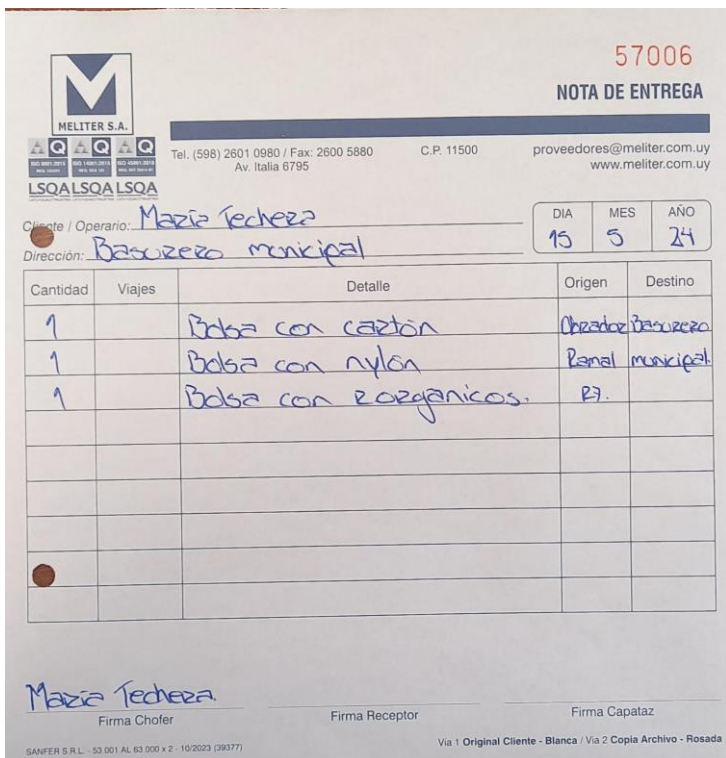 57006
NOTA DE ENTREGA
MELITER S.A.
LSQA LSQA LSQA
Tel. (598) 2601 0980 / Fax: 2600 5880 C.P. 11500 proveedores@meliter.com.uy
Av. Italia 6795 www.meliter.com.uy
Cliente / Operario: Maria Techera
DIA MES AÑO
15 5 24
Dirección: Basurero municipal
Cantidad Viajes Detalle Origen Destino
1 Bolsa con cartón Obrador Basurero
1 Bolsa con nylón Ramal municipal.
1 Bolsa con R orgánicos. R7.
Maria Techera.
Firma Chofer Firma Receptor Firma Capataz
SANFER S.R.L. - 53 001 AL 63 000 x 2 - 10/2023 (39377) Vía 1 Original Cliente - Blanca / Vía 2 Copia Archivo - Rosada